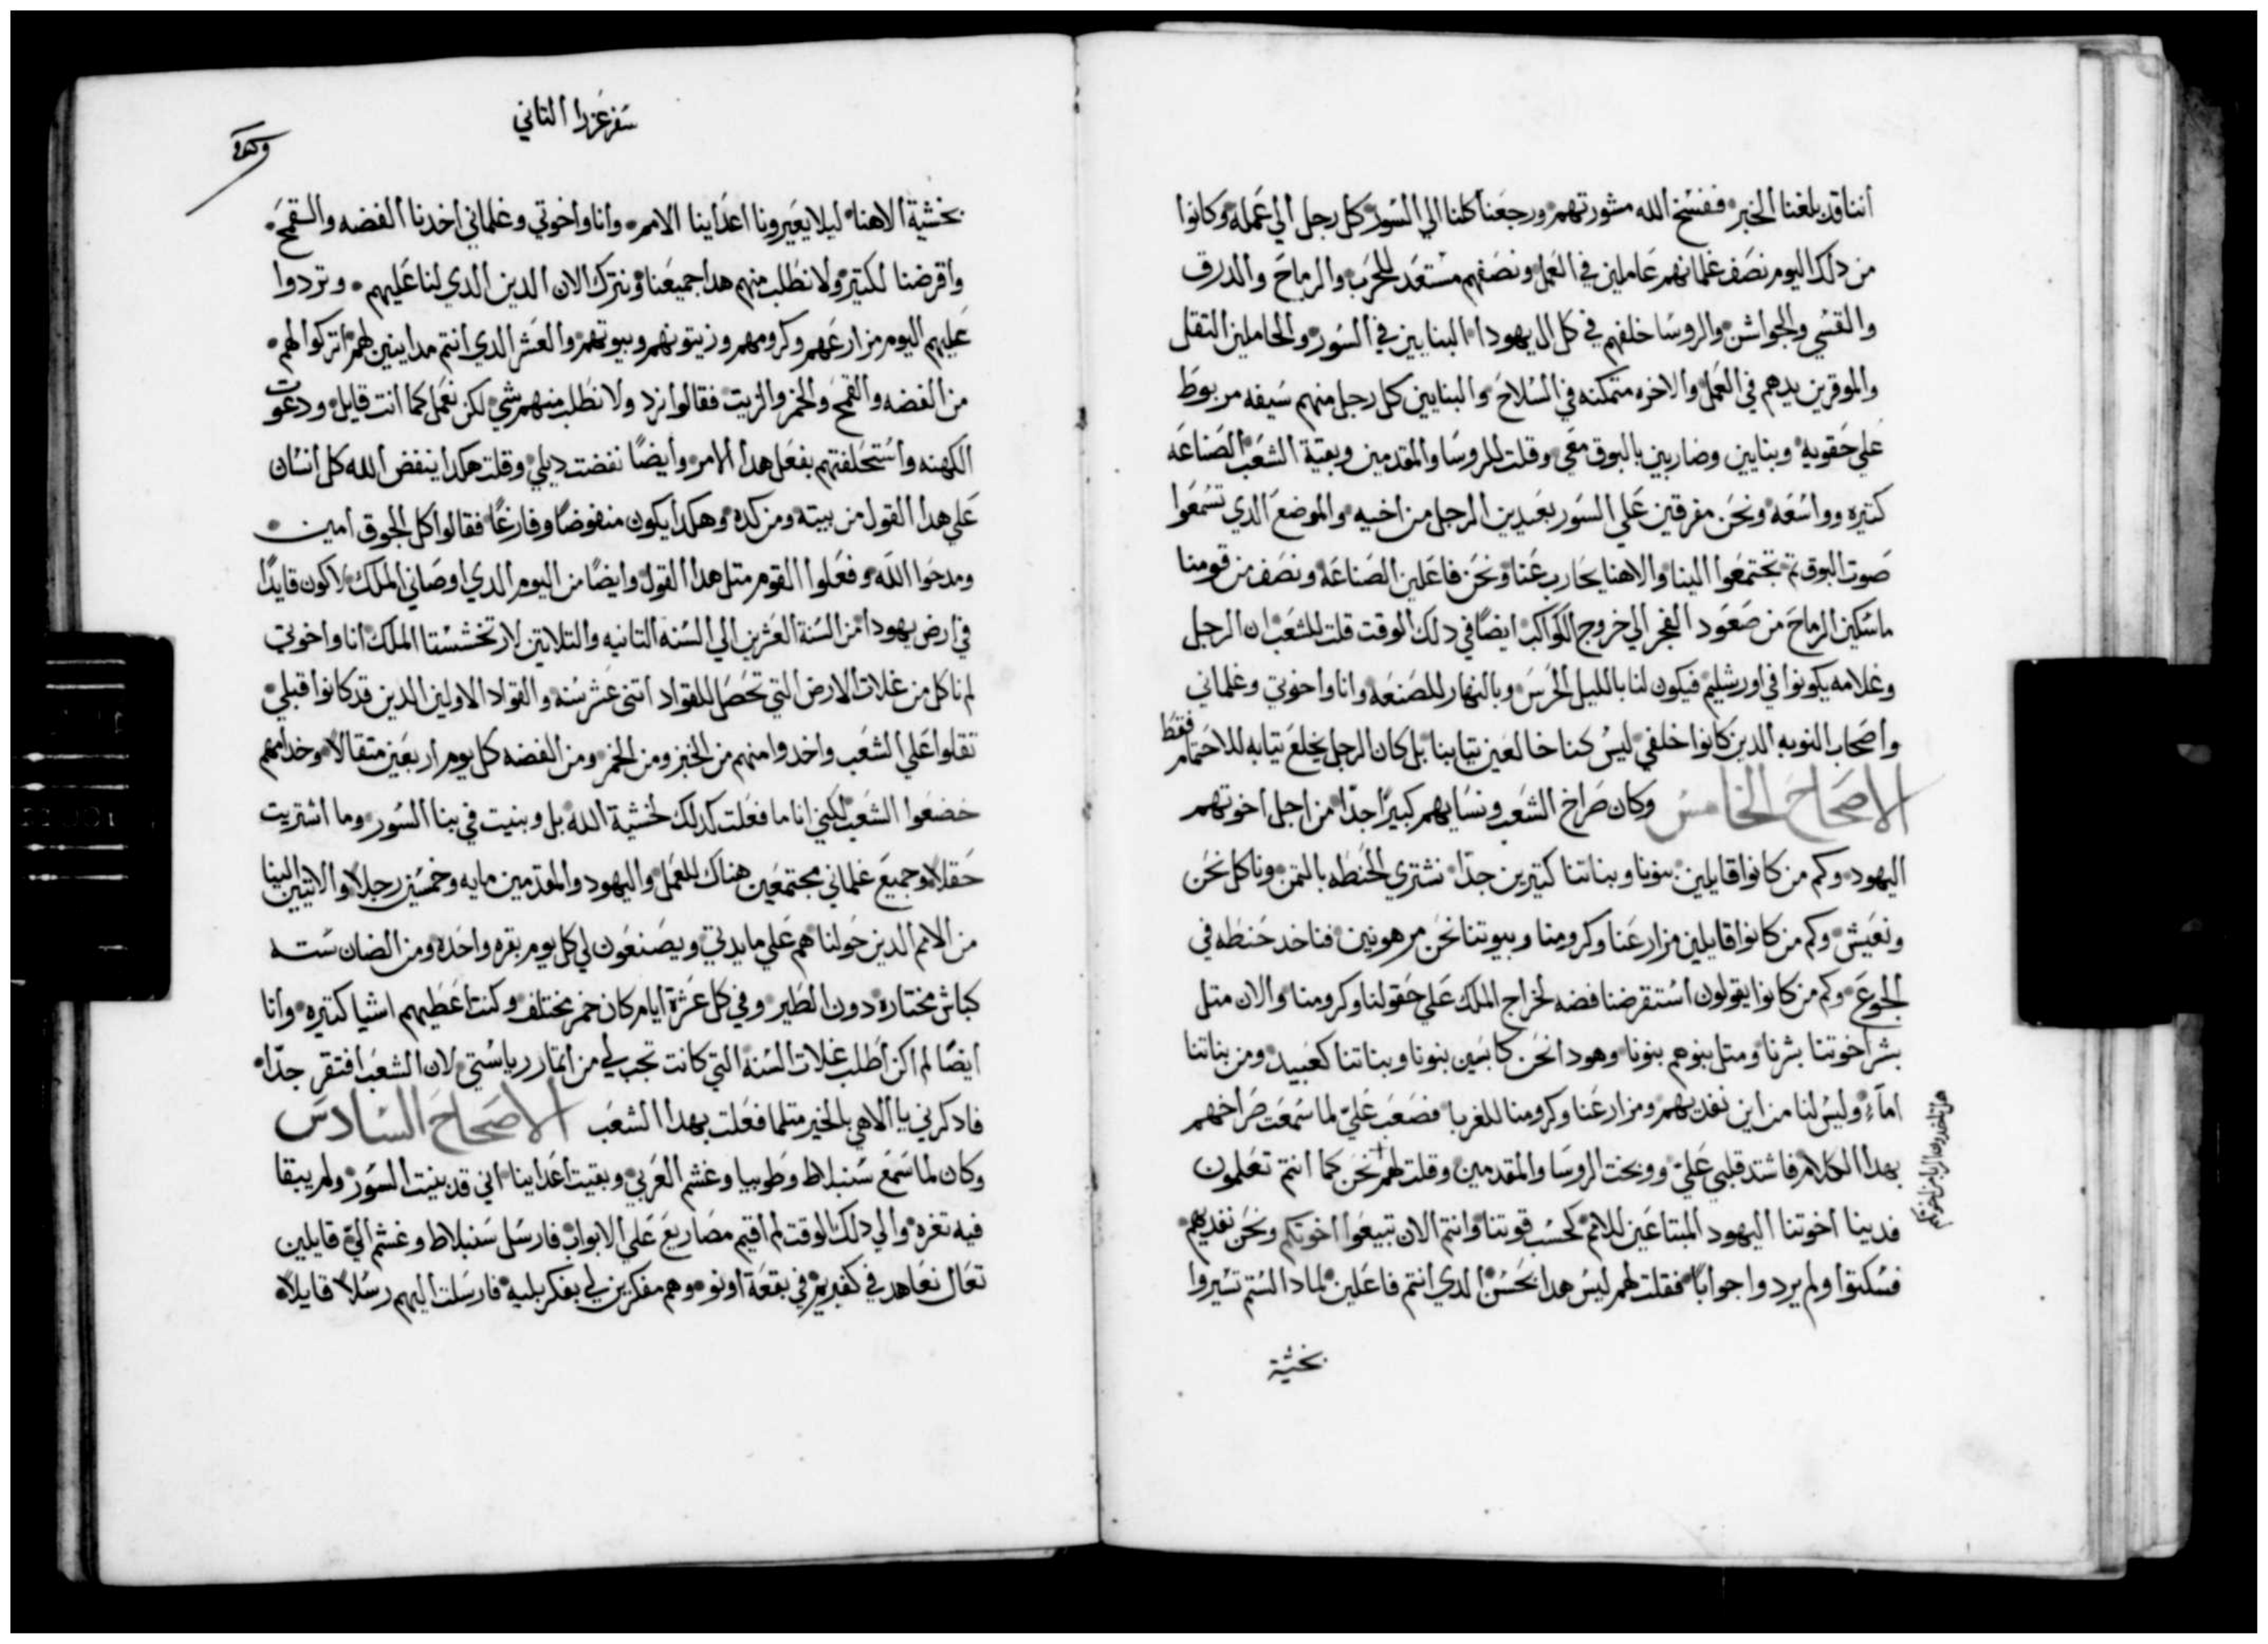 اننا قد بلغنا الخبر ففسخ الله مشورتهم ورجعنا كلنا الي السور كل رجل الي عمله وكانوا
من دلك اليوم نصف غلمانهم عاملين في العمل ونصفهم مستعد للحرب والرماح والدرق
والقسي والجواشن والروسا خلفهم في كل ال يهودا البنايين في السور والحاملين التقل
والموقرين يدهم في العمل والاخره متمكنه في السلاح والبنايين كل رجل منهم سيفه مربوط
علي حقويه وبنايين وضاربين بالبوق معي وقلت للروسا والمقدمين وبقية الشعب الصناعه
كتيره وواسعه ونحن مفرقين علي السور بعيدين الرجل من اخيه والموضع الدي تسمعوا
صوت البوق تم تجتمعوا الينا والاهنا يحارب عنا ونحن فاعلين الصناعه ونصف من قومنا
ماسكين الرماح من صعود الفجر الي خروج الكواكب ايضا في دلك الوقت قلت للشعب ان الرجل
وغلامه يكونوا في اورشليم فيكون لنا بالليل الحرس وبالنهار للصنعه وانا واخوتي وغلماني
واصحاب النوبه الدين كانوا خلفي ليس كنا خالعين تيابنا بل كان الرجل يخلع تيابه للاحتمام فقط
الاصحاح الخامس وكان صراخ الشعب ونسايهم كبيرا جدا من اجل اخوتهم
اليهود وكم من كانوا قايلين بنونا وبناتنا كتيرين جدا نشتري الحنطه بالتمن وناكل نحن
ونعيش وكم من كانوا قايلين مزارعنا وكرومنا وبيوتنا نحن مرهونين فناخد حنطه في
الجوع وكم من كانوا يقولون استقرضنا فضه لخراج الملك علي حقولنا وكرومنا والان متل
بشر اخوتنا بشرنا ومتل بنوهم بنونا وهودا نحن كابسين بنونا وبناتنا كعبيد ومن بناتنا
اماء وليس لنا من اين نفديهم ومزارعنا وكرومنا للغربا فصعب علي لما سمعت صراخهم
بهدا الكلام فاشتد قلبي علي ووبخت الروسا والمقدمين وقلت لهم نحن كما انتم تعلمون
فدينا اخوتنا اليهود المبتاعين للامم كحسب قوتنا وانتم الان تبيعوا اخوتكم ونحن نفديهم
فسكتوا ولم يردوا جوابا فقلت لهم ليس هدا بحسن الدي انتم فاعلين لمادا لستم تسيروا
بخشية
سفر عزرا التاني
بخشية الاهنا ليلا يعيرونا اعداينا الامم وانا واخوتي وغلماني اخدنا الفضه والقمح
واقرضنا لكتير ولا نطلب منهم هدا جميعنا ونترك الان الدين الدي لنا عليهم وتردوا
عليهم اليوم مزارعهم وكرومهم وزيتونهم وبيوتهم والعشر الدي انتم مداينين لهم اتركوا لهم
من الفضه والقمح والخمر والزيت فقالوا نرد ولا نطلب منهم شي لكن نعمل كما انت قايل ودعوت
الكهنه واستحلفتهم بفعل هدا الامر وايضا نفضت ديلي وقلت هكدا ينفض الله كل انسان
علي هدا القول من بيته ومن كده وهكدا يكون منفوضا وفارغا فقالوا كل الجوق امين
ومدحوا الله وفعلوا القوم متل هدا القول وايضا من اليوم الدي اوصاني الملك لاكون قايدا
في ارض يهودا من السنة العشرين الي السنه التانيه والتلاتين لارتخشستا الملك انا واخوتي
لم ناكل من غلات الارض التي تحصل للقواد اتنى عشر سنه والقواد الاولين الدين قد كانوا قبلي
تقلوا علي الشعب واخدوا منهم من الخبز ومن الخمر ومن الفضه كل يوم اربعين متقالا وخدامهم
خضعوا الشعب لكني انا ما فعلت كدلك لخشية الله بل وبنيت في بنا السور وما اشتريت
حقلا وجميع غلماني مجتمعين هناك للعمل واليهود والمقدمين مايه وخمسين رجلا والاتيين الينا
من الامم الدين حولنا هم علي مايدتي ويصنعون لي كل يوم بقره واحده ومن الضان سته
كباش مختاره دون الطير وفي كل عشرة ايام كان خمر مختلف وكنت اعطيهم اشيا كتيره وانا
ايضا لم اكن اطلب غلات السنة التي كانت تجب لي من اتمار رياستي لان الشعب افتقر جدا
فادكرني يا الاهي بالخير متلما فعلت بهدا الشعب الاصحاح السادس
وكان لما سمع سنبلاط وطوبيا وغشم العربي وبقيت اعداينا اني قد بنيت السور ولم يبقا
فيه تغره والي دلك الوقت لم اقيم مصاريع علي الابواب فارسل سنبلاط وغشم الي قايلين
تعال نعاهد في كفيريم في بقعة اونو وهم مفكرين لي بفكر بليه فارسلت اليهم رسلا قايلا